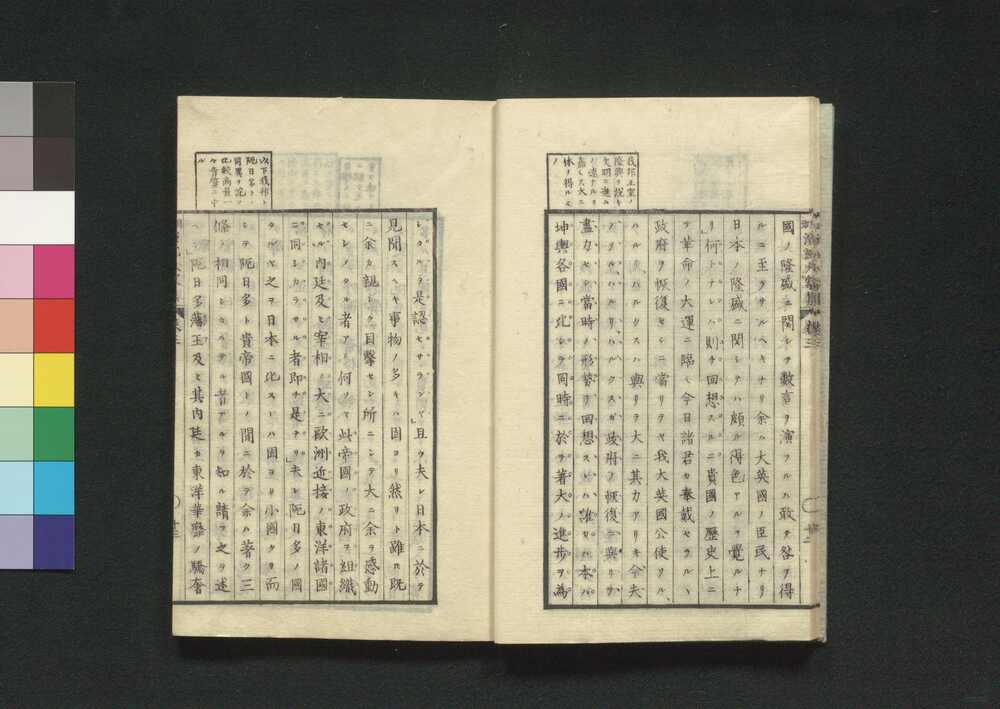 我邦王室ノ
隆興ヲ祝シ
文明ニ進ム
ノ速ナルヲ
嘉ミス大ニ
体ヲ得ルモ
ノ
國ノ隆盛ニ関シテ數言ヲ演フルハ敢テ咎ヲ得
ルニ至ラサルヘキナリ余ハ大英國ノ臣民ナリ
日本ノ隆盛ニ関シテハ頗ル得色アルヲ覺ルナ
リ何トナレハ則チ回想スルニ貴國ノ歴史上ニ
テ革命ノ大運ニ臨ミ今日諸君カ奉戴セラルヽ
政府ヲ恢復セシニ當リテヤ我大英國公使ヲルハ
ハルリーパルクスハ與リテ大ニ其力アリキ今夫
ノサルハルリーパルクスガ政府ノ恢復ニ與リテ
盡力セシ當時ノ形勢ヲ回想スレハ誰カハ本ハ
坤輿各國ニ比シテ同時ニ於テ著大ノ進歩ヲ爲
以下我邦ト
阨日多トノ
同異ヲ説ク
比較両百一
々肯綮ニ中
ル
シタルヲ是認セサランヤ」且ツ夫レ日本ニ於テ
見聞スヘキ事物ノ多キハ固ヨリ然リト雖𪜈既
ニ余カ親シク目撃セシ所ニシテ大ニ余ヲ感動
セシメタル者アリ何ソヤ此帝國ノ政府ヲ組織
セル内廷及ヒ宰相ノ大ニ歐洲近接ノ東洋諸國
ニ同シカラサル者即チ是ナリ」夫レ阨日多ノ國
タルヤ之ヲ日本ニ比スレハ固ヨリ小國タリ而
シテ阨日多ト貴帝國トノ間ニ於テ余ハ著ク三
條ノ相同シカラサル者アルヲ知ル請フ之ヲ述
ヘン阨日多藩王及ヒ其内廷カ東洋華靡ノ驕奢